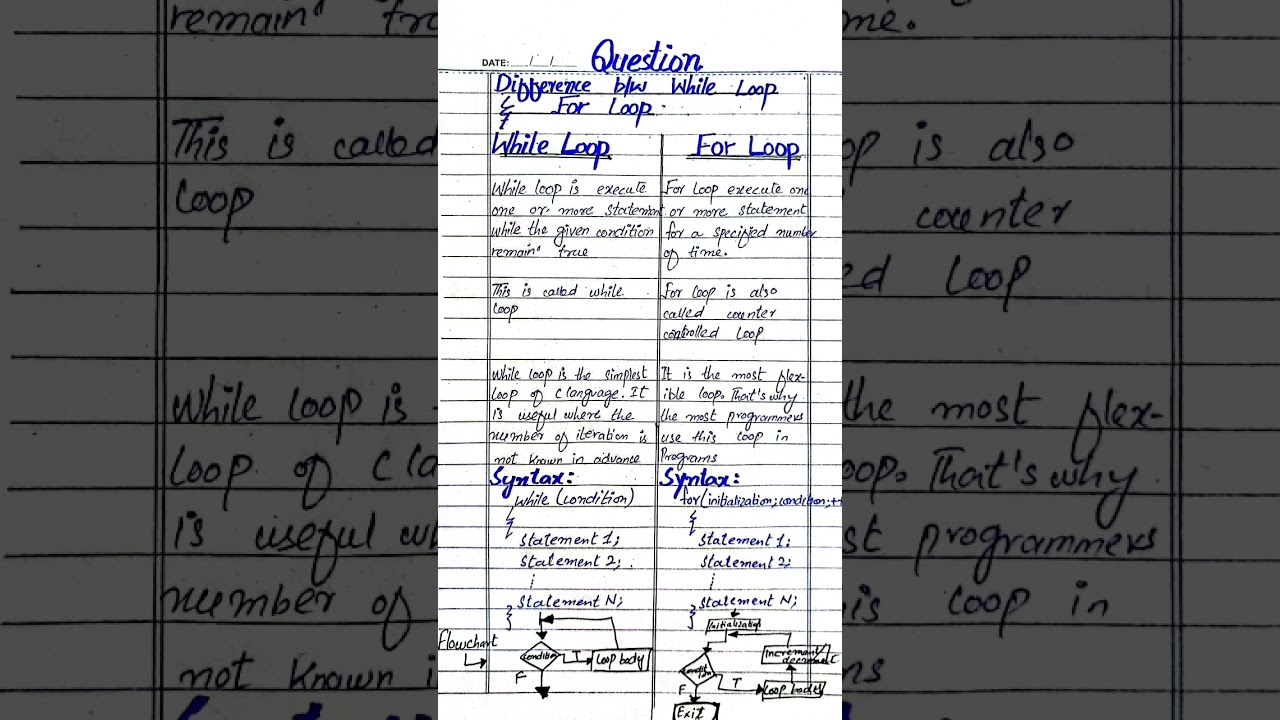 DATE: __/__/__
Question
Difference b/w While Loop
& For Loop.
While Loop
While loop is execute
one or more statement
while the given condition
remain' true
This is called while
loop
While loop is the simplest
loop of C language. It
is useful where the
number of iteration is
not known in advance
Syntax:
while (condition)
{
statement 1;
statement 2;
⋮
statement N;
}
Flowchart
condition
T
Loop body
F
For Loop
For Loop execute one
or more statement
for a specified number
of time.
For loop is also
called counter
controlled loop
It is the most flex-
ible loop. That's why
the most programmers
use this loop in
Programs
Syntax:
for(initialization; condition; ++
{
statement 1;
statement 2;
⋮
statement N;
}
initialization
Condition
T
Loop body
Increment/
decrement
F
Exit